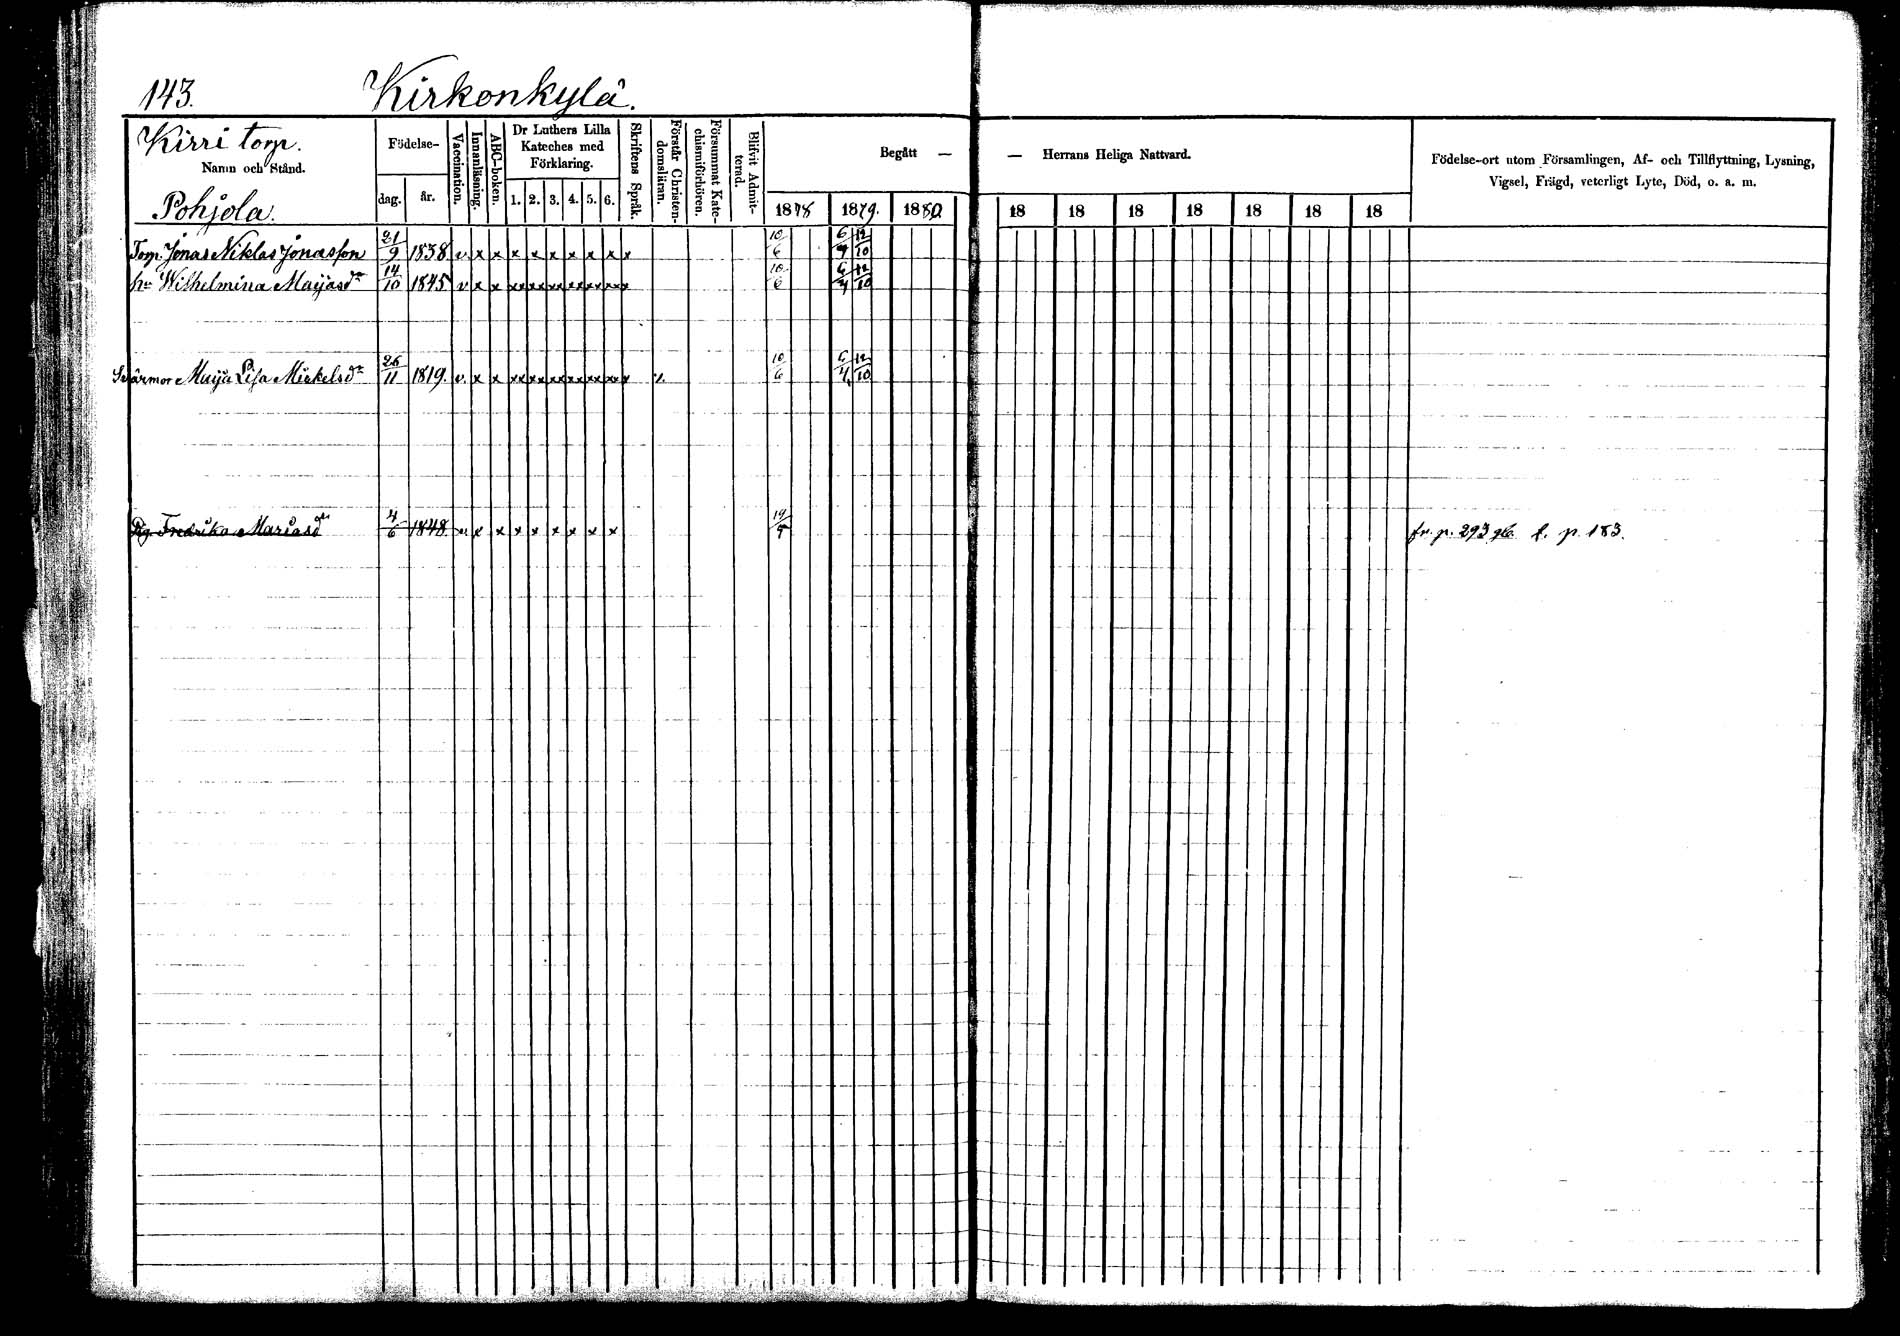 143. Kirkonkylä.
Kirri torp.
Namn och Stånd.
Pohjola.
Födelse-
dag. år.
Vaccination.
Innanläsning.
ABC-boken.
Dr Luthers Lilla
Kateches med
Förklaring.
1. 2. 3. 4. 5. 6.
Skriftens Språk.
Förstår Christen-
domsläran.
Försummat Kate-
chismiförhören.
Blifvit Admit-
terad.
Begått —
1878 1879. 1880.
— Herrans Heliga Nattvard.
18 18 18 18 18 18 18
Födelse-ort utom Församlingen, Af- och Tillflyttning, Lysning,
Vigsel, Frägd, veterligt Lyte, Död, o. a. m.
Torp. Jonas Niklas Jonasson 21/9 1838 v. x x x x x x x x x 10/6 6/4 12/10
hu Wilhelmina Maijasdr 14/10 1845 v x x xx xx xx xx xx xx x 10/6 6/4 12/10
Svärmor Maija Lisa Mickelsdr 26/11 1819. v. x x xx xx xx xx xx xx x 10/6 6/4 12/10
Pig. Fredrika Mariasdr 4/6 1848. v. x x x x x x x x 19/5 fr. p. 293 t. p. 183.